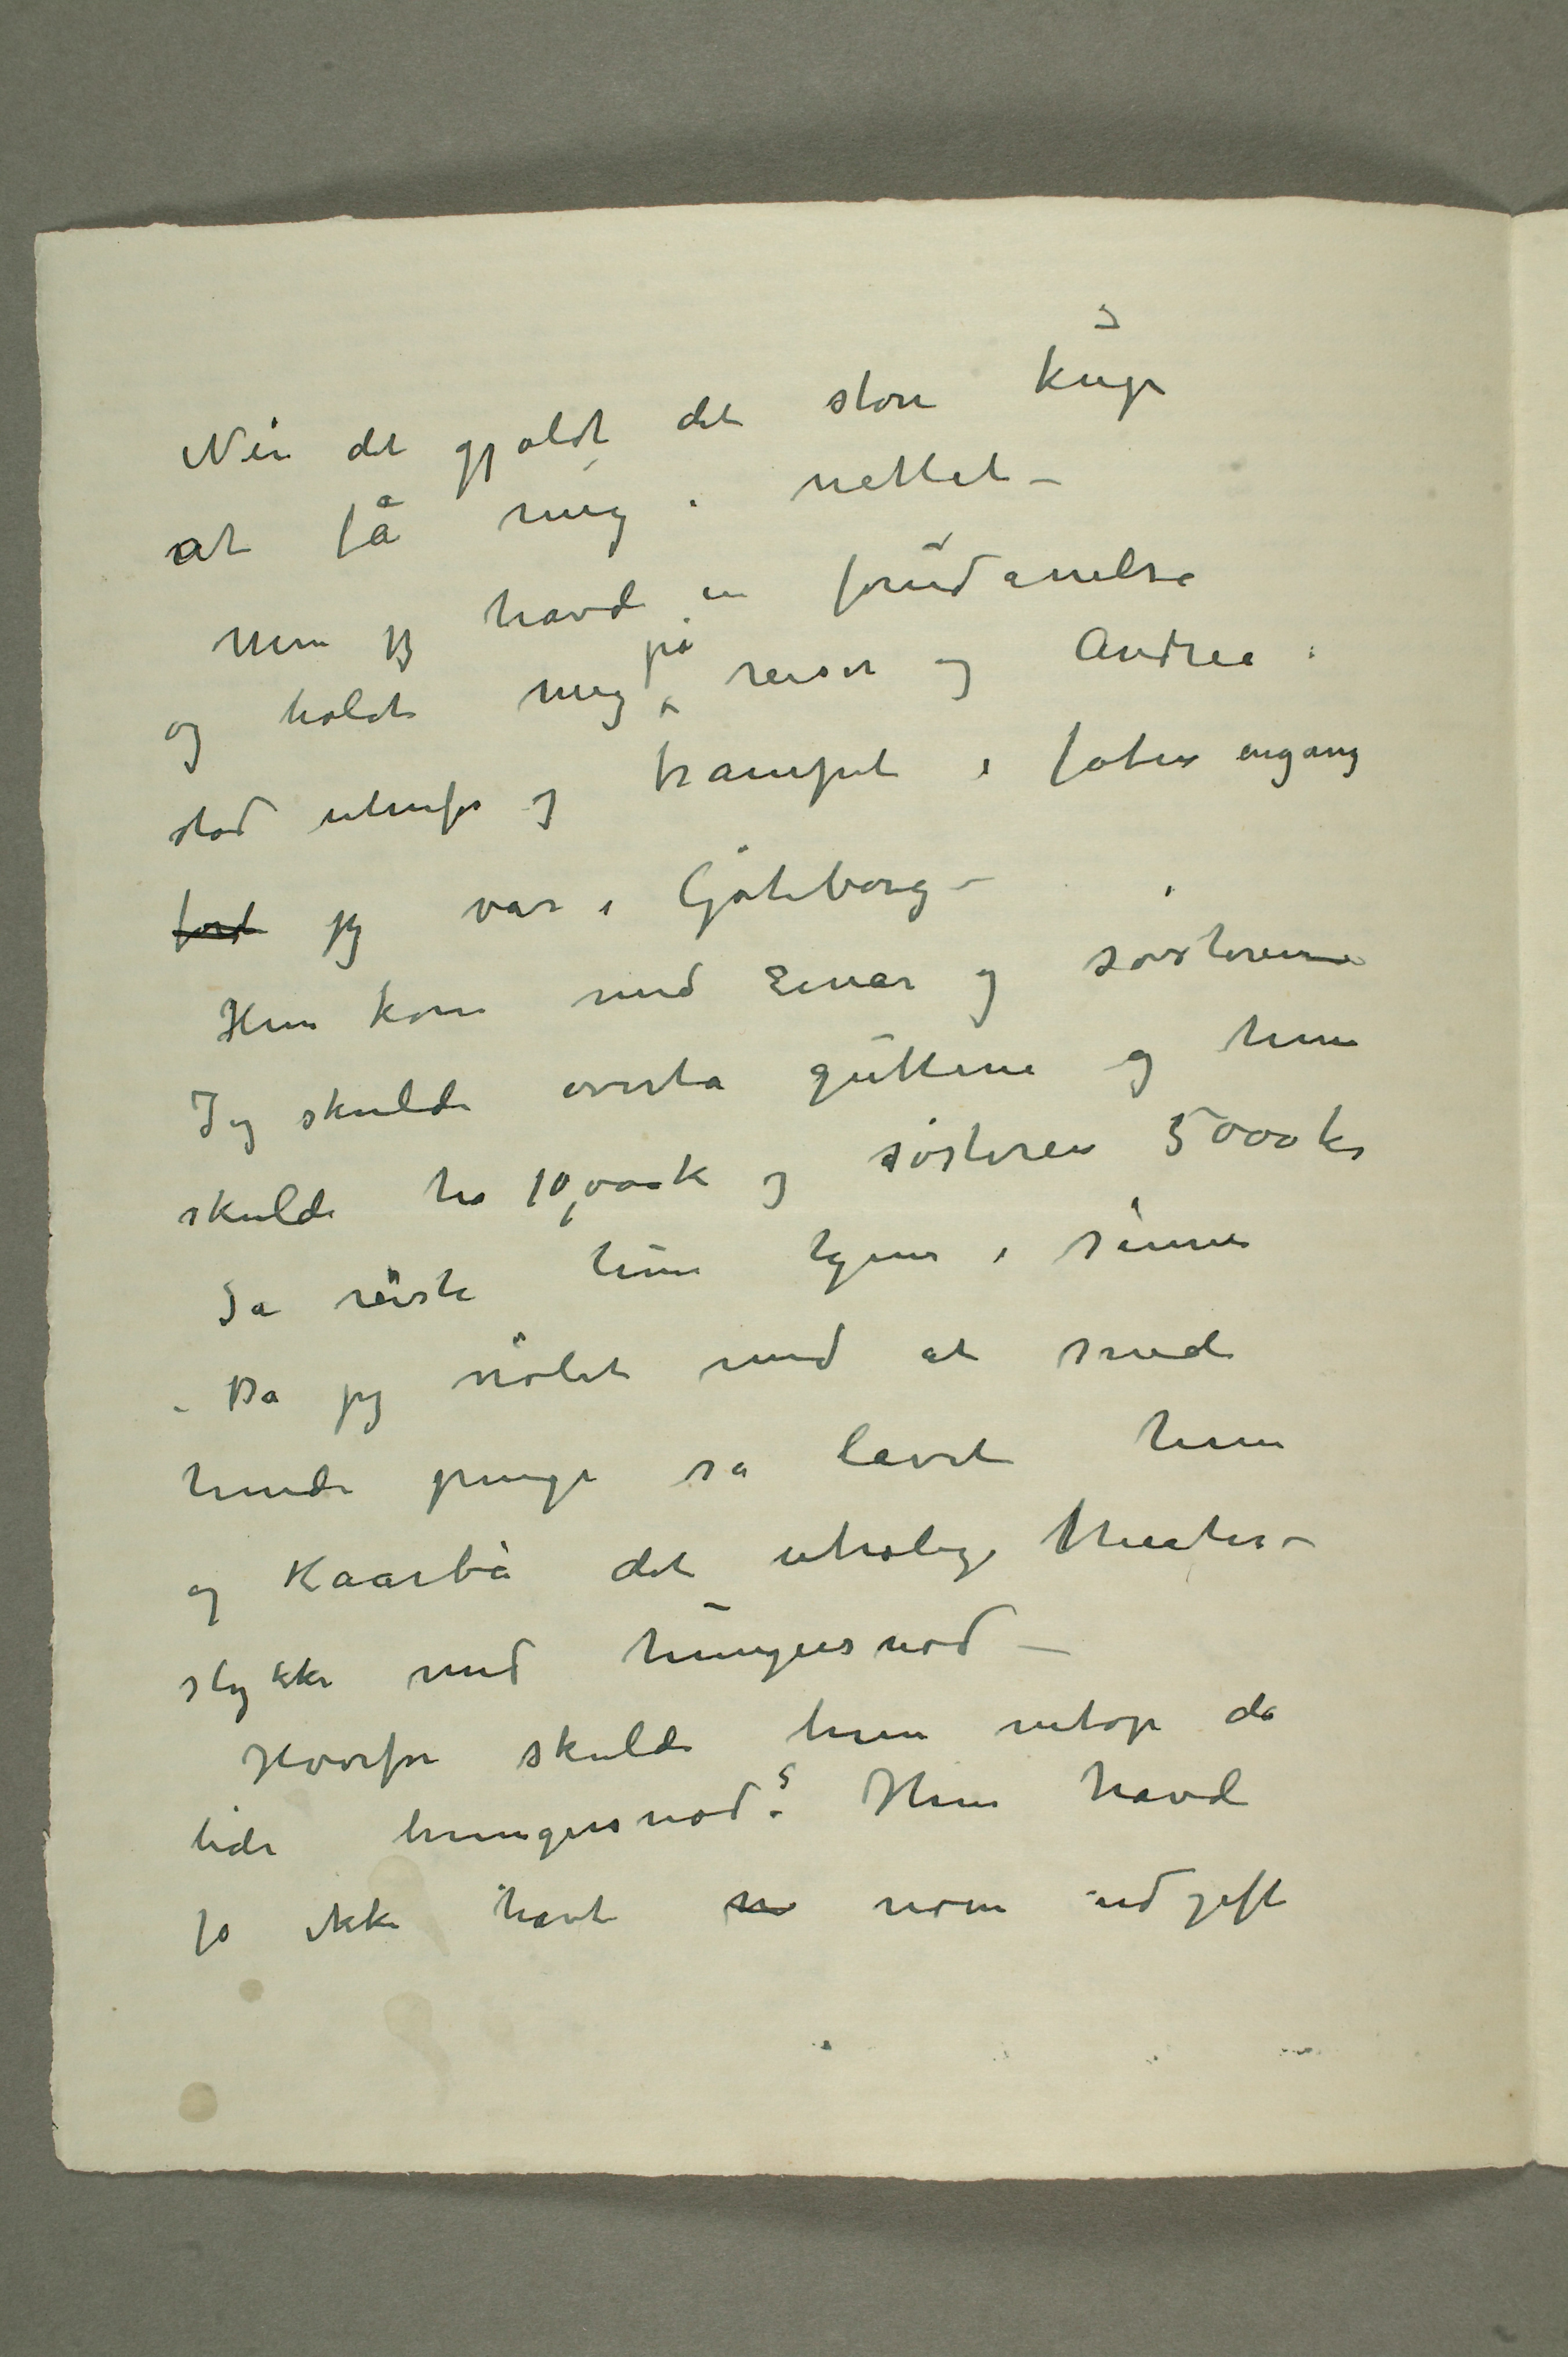 Nei det gjaldt det store kup
at få mig i nettet –
Men jeg havde en forudanelse
og holdt mig på reiser og Andrea
stod utenfor og trampet i foten engang
ford jeg var i Göteborg –
Hun kom med Einar og søsteren
Jeg skulde overta guttene og hun
skulde ha 10,000 k og søsteren 5000 kr
Så reiste hun hjem i sinne
– Da jeg nølet med at sende
hende penge så lavet hun
og Kaarbø det utrolige theater–
stykke med hungersnød –
Hvorfor skulde hun netop da
lide hungersnød? Hun havde
jo ikke havt n noen udgift